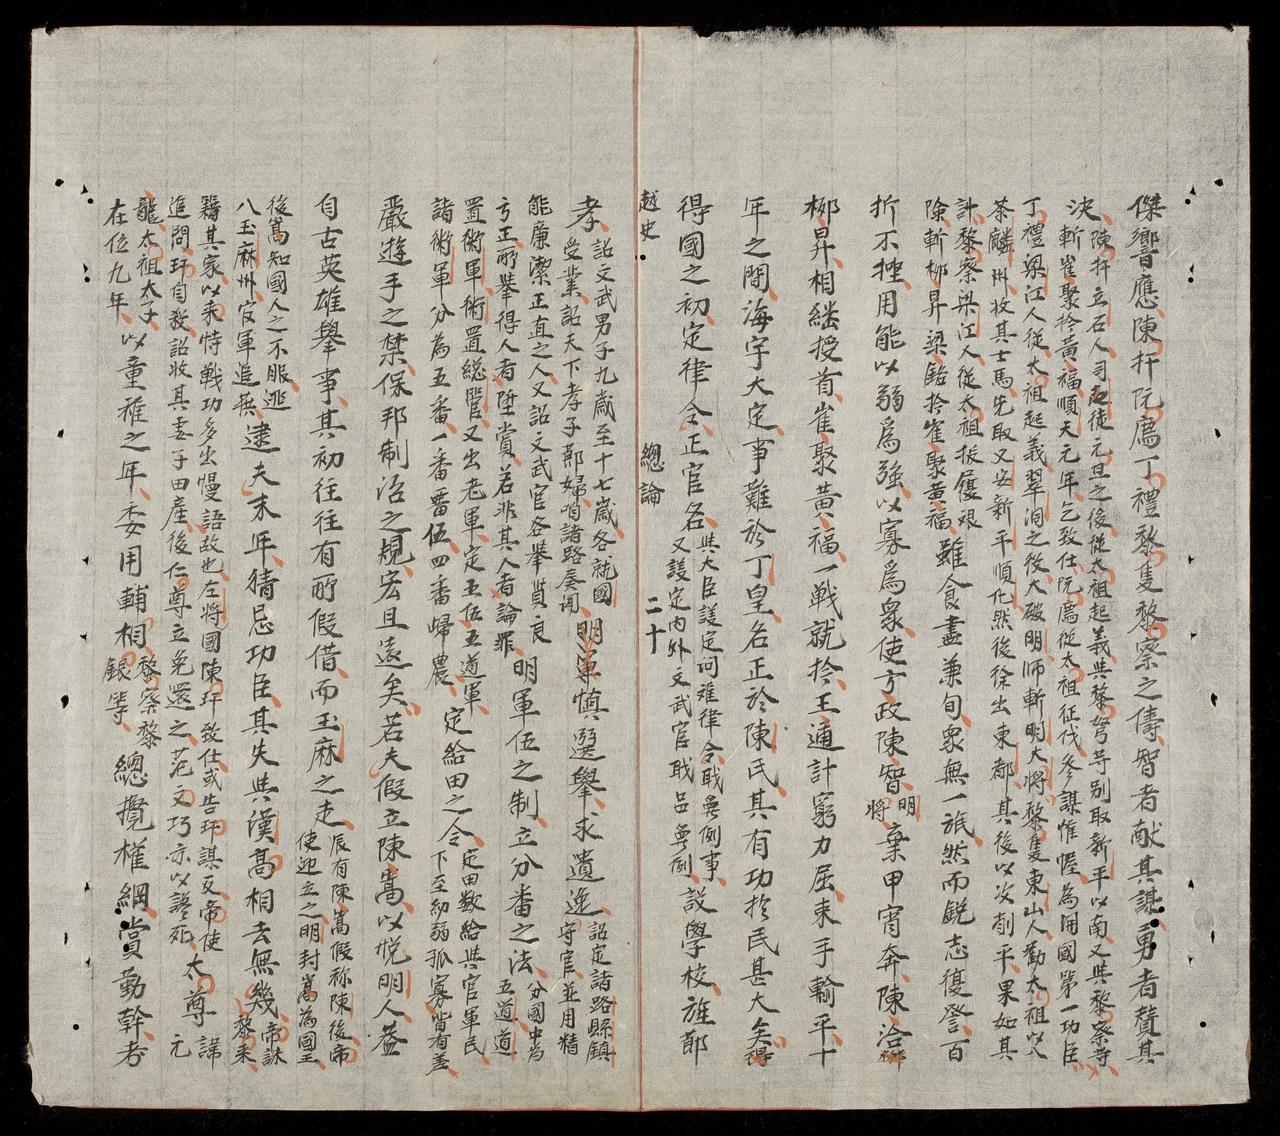 傑響應陳扞阮廌丁禮黎隻黎察之儔智者献其謀勇者賛其
決陳扞立石人司起徒元旦之後從太祖起義與黎弩等别取新平以南又與黎察等
斬崔聚擒黄福順天元年乞致仕阮廌從太祖征伐參謀惟幄為開國第一功臣
丁禮梁江人從太祖起義翠洞之役大破明師斬明大将黎隻東山人勸太祖以
茶麟州收其士馬先取乂安新平順化然後徐出東都其後以次削平果如其
計黎察梁江人從太祖扶履艰
險斬柳昇梁銘擒崔聚黄福雖食盡兼旬衆無一旅然而鋭志復讐百
折不挫用能以弱為強以寡為衆使方政陳智明将棄甲宵奔陳洽柳
柳昇相継授首崔聚黄福一戦就擒王通計窮力屈束手輸平十
年之間海宇大定事難於丁皇名正於陳民其有功於民甚大矣得
得國之初定律令正官名與大臣議定詞难律令戢無例事
又議定内外文武官戢品無例設學校旌節
越史 總論 二十
孝詔文武男子九歳至十七歳各就國
受業詔天下孝子節婦咱諸路奏闻明軍慎選舉求遺逸詔定諸路縣鎮
守官並用精
能廉潔正直之人又詔文武官各舉賢良
方正所舉得人者陞賞若非其人者論罪明軍伍之制立分番之法分國中為
五道道
置術軍術置總管又出老軍定五伍五道軍
諸術軍分為五番一番畱伍四番歸農定給田之令定田數給與官軍民
下至幼弱孤寡皆有差
嚴遊手之禁保邦制治之規宏且遠矣若夫假立陳暠以悦明人葢
自古英雄舉事其初往往有所假借而玉麻之走辰有陳暠假称陳後帝
使迎立之明封暠為國王
後暠知國人之不服逃
八玉麻州官軍追殺逮夫末年猜忌功臣其失與漢高相去無幾帝誅
黎来
籍其家以来恃戦功多出慢語故也左将國陳扞致仕或告扞謀反帝使
追問扞自殺詔收其妻子田產後仁尊立免還之范文巧亦以讒死太尊諱
元
龍太祖太子
在位九年以童稚之年委用輔相黎察黎
銀等總攬權綱賞勤幹者